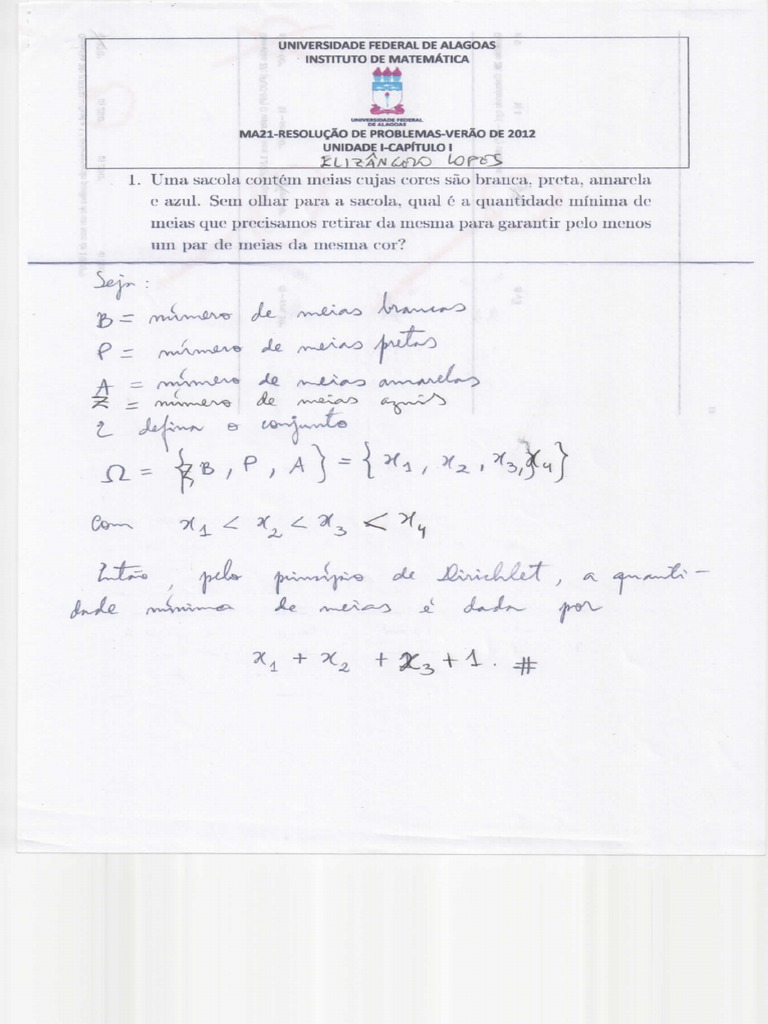 UNIVERSIDADE FEDERAL DE ALAGOAS
INSTITUTO DE MATEMÁTICA
UNIVERSIDADE FEDERAL
DE ALAGOAS
MA21-RESOLUÇÃO DE PROBLEMAS-VERÃO DE 2012
UNIDADE I-CAPÍTULO I
ELIZÂNGELO LOPES
1. Uma sacola contém meias cujas cores são branca, preta, amarela
e azul. Sem olhar para a sacola, qual é a quantidade mínima de
meias que precisamos retirar da mesma para garantir pelo menos
um par de meias da mesma cor?
Seja:
B = número de meias brancas
P = número de meias pretas
A = número de meias amarelas
Z = número de meias azuis
E defina o conjunto
Ω = {Z, B, P, A} = {x₁, x₂, x₃, x₄}
Com x₁ < x₂ < x₃ < x₄
Então, pelo princípio de Dirichlet, a quanti-
dade mínima de meias é dada por
x₁ + x₂ + x₃ + 1. #